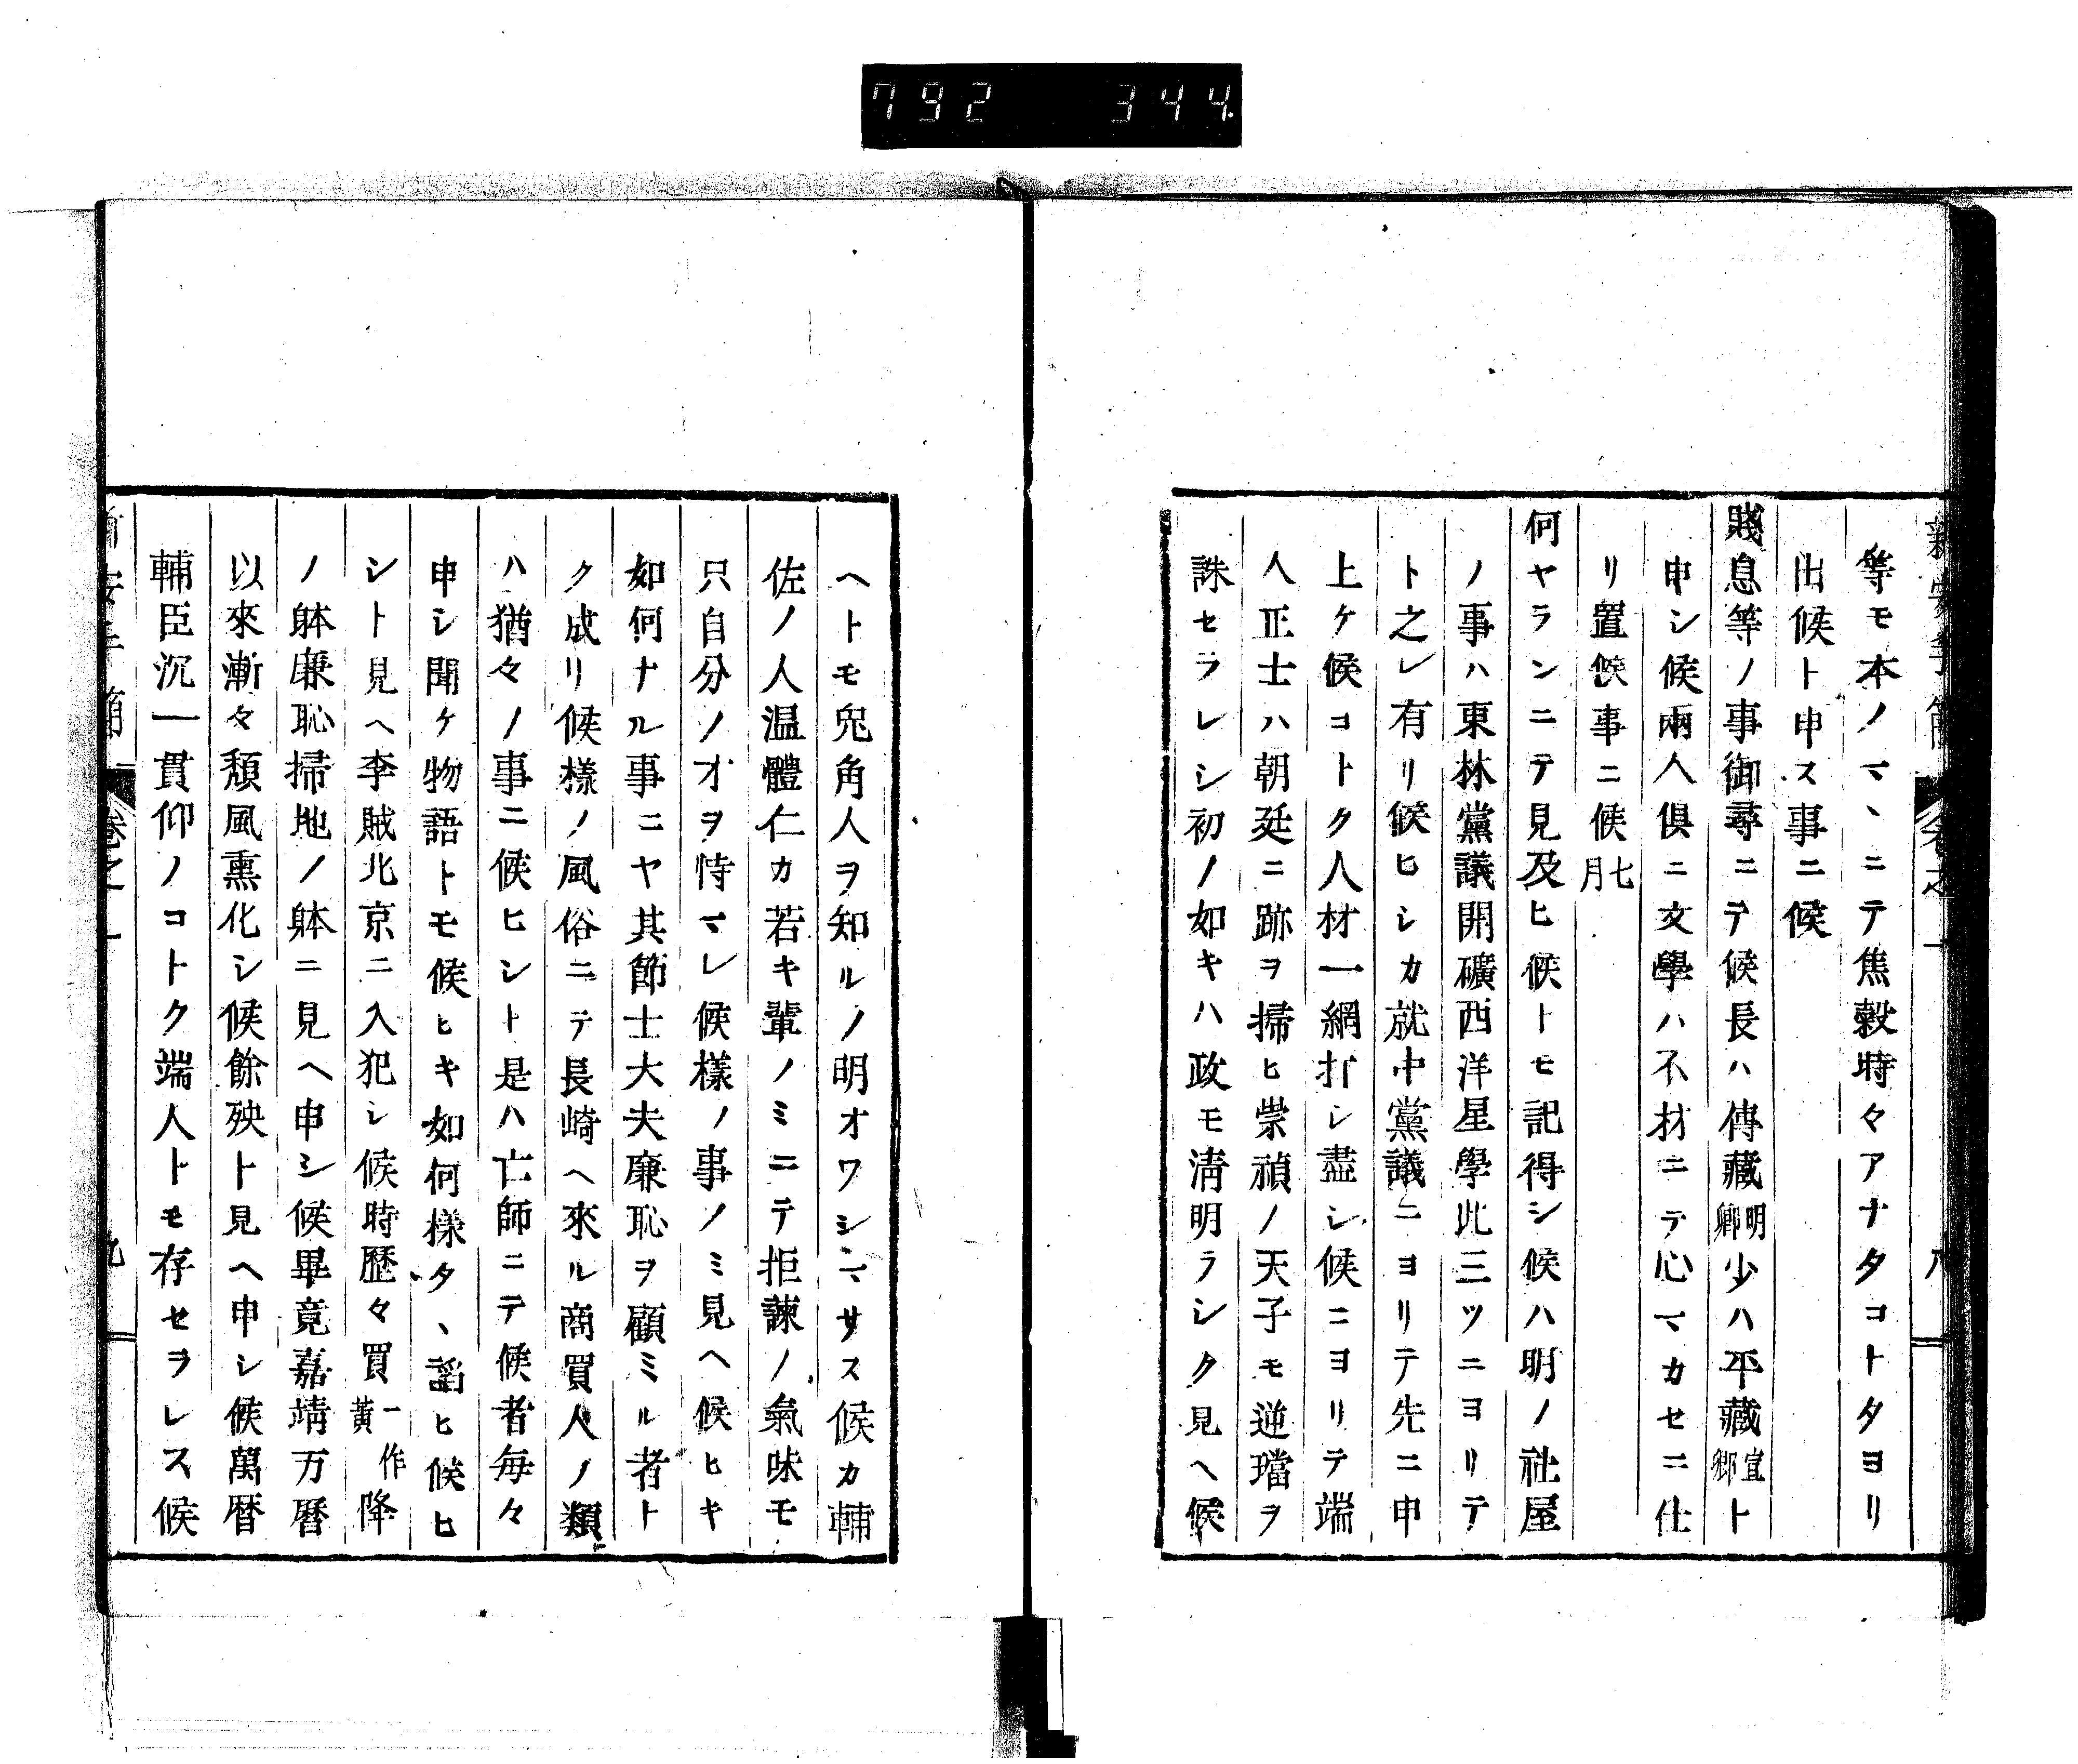 792 344.
等モ本ノマヽニテ焦穀時々アナタコトタヨリ
出候ト申ス事ニ候
賤息等ノ事御尋ニテ候長ハ傳藏明卿少ハ平藏宜卿ト
申シ候兩人俱ニ文學ハ不材ニテ心マカセニ仕
リ置候事ニ候七月
何ヤランニテ見及ヒ候トモ記得シ候ハ明ノ社屋
ノ事ハ東林黨議開礦西洋星學此三ツニヨリテ
ト之レ有リ候ヒシカ就中黨議ニヨリテ先ニ申
上ケ候コトク人材一網打シ盡シ候ニヨリテ端
人正士ハ朝廷ニ跡ヲ掃ヒ崇禎ノ天子モ逆璫ヲ
誅セラレシ初ノ如キハ政モ淸明ラシク見ヘ候
ヘトモ兔角人ヲ知ルノ明オワシマサス候カ輔
佐ノ人温體仁カ若キ輩ノミニテ拒諫ノ氣味モ
只自分ノオヲ恃マレ候樣ノ事ノミ見ヘ候ヒキ
如何ナル事ニヤ其節士大夫廉恥ヲ顧ミル者ト
ク成リ候樣ノ風俗ニテ長崎ヘ來ル商買人ノ類
ハ猶々ノ事ニ候ヒシト是ハ亡師ニテ候者毎々
申シ聞ケ物語トモ候ヒキ如何樣タヽ謟ヒ候ヒ
シト見ヘ李賊北京ニ入犯シ候時歷々買一作黃降
ノ躰廉恥掃地ノ躰ニ見ヘ申シ候畢竟嘉靖万曆
以來漸々頹風熏化シ候餘殃ト見ヘ申シ候萬曆
輔臣沉一貫仰ノコトク端人トモ存セヲレス候
卷之一